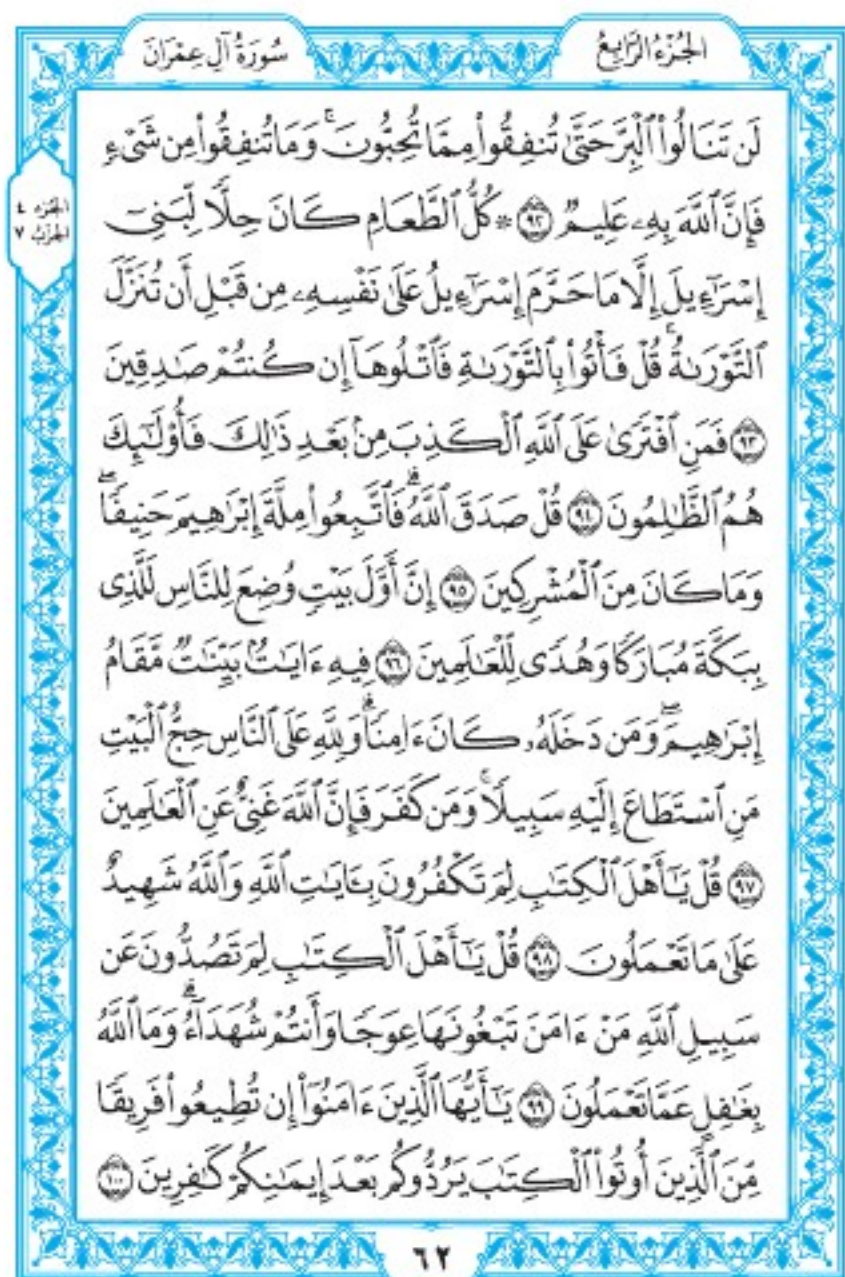 الجُزْءُ الرَّابِعُ
سُورَةُ آلِ عِمْرَانَ
لَن تَنَالُوا۟ ٱلْبِرَّ حَتَّىٰ تُنفِقُوا۟ مِمَّا تُحِبُّونَ ۚ وَمَا تُنفِقُوا۟ مِن شَىْءٍ
فَإِنَّ ٱللَّهَ بِهِۦ عَلِيمٌ ۝٩٢ ۞ كُلُّ ٱلطَّعَامِ كَانَ حِلًّا لِّبَنِىٓ
إِسْرَٰٓءِيلَ إِلَّا مَا حَرَّمَ إِسْرَٰٓءِيلُ عَلَىٰ نَفْسِهِۦ مِن قَبْلِ أَن تُنَزَّلَ
ٱلتَّوْرَىٰةُ ۗ قُلْ فَأْتُوا۟ بِٱلتَّوْرَىٰةِ فَٱتْلُوهَآ إِن كُنتُمْ صَٰدِقِينَ
۝٩٣ فَمَنِ ٱفْتَرَىٰ عَلَى ٱللَّهِ ٱلْكَذِبَ مِنۢ بَعْدِ ذَٰلِكَ فَأُو۟لَٰٓئِكَ
هُمُ ٱلظَّٰلِمُونَ ۝٩٤ قُلْ صَدَقَ ٱللَّهُ ۗ فَٱتَّبِعُوا۟ مِلَّةَ إِبْرَٰهِيمَ حَنِيفًا ۖ
وَمَا كَانَ مِنَ ٱلْمُشْرِكِينَ ۝٩٥ إِنَّ أَوَّلَ بَيْتٍ وُضِعَ لِلنَّاسِ لَلَّذِى
بِبَكَّةَ مُبَارَكًا وَهُدًى لِّلْعَٰلَمِينَ ۝٩٦ فِيهِ ءَايَٰتٌۢ بَيِّنَٰتٌ مَّقَامُ
إِبْرَٰهِيمَ ۖ وَمَن دَخَلَهُۥ كَانَ ءَامِنًا ۗ وَلِلَّهِ عَلَى ٱلنَّاسِ حِجُّ ٱلْبَيْتِ
مَنِ ٱسْتَطَاعَ إِلَيْهِ سَبِيلًا ۚ وَمَن كَفَرَ فَإِنَّ ٱللَّهَ غَنِىٌّ عَنِ ٱلْعَٰلَمِينَ
۝٩٧ قُلْ يَٰٓأَهْلَ ٱلْكِتَٰبِ لِمَ تَكْفُرُونَ بِـَٔايَٰتِ ٱللَّهِ وَٱللَّهُ شَهِيدٌ
عَلَىٰ مَا تَعْمَلُونَ ۝٩٨ قُلْ يَٰٓأَهْلَ ٱلْكِتَٰبِ لِمَ تَصُدُّونَ عَن
سَبِيلِ ٱللَّهِ مَنْ ءَامَنَ تَبْغُونَهَا عِوَجًا وَأَنتُمْ شُهَدَآءُ ۗ وَمَا ٱللَّهُ
بِغَٰفِلٍ عَمَّا تَعْمَلُونَ ۝٩٩ يَٰٓأَيُّهَا ٱلَّذِينَ ءَامَنُوٓا۟ إِن تُطِيعُوا۟ فَرِيقًا
مِّنَ ٱلَّذِينَ أُوتُوا۟ ٱلْكِتَٰبَ يَرُدُّوكُم بَعْدَ إِيمَٰنِكُمْ كَٰفِرِينَ ۝١٠٠
الجزء ٤
الحزب ٧
٦٢